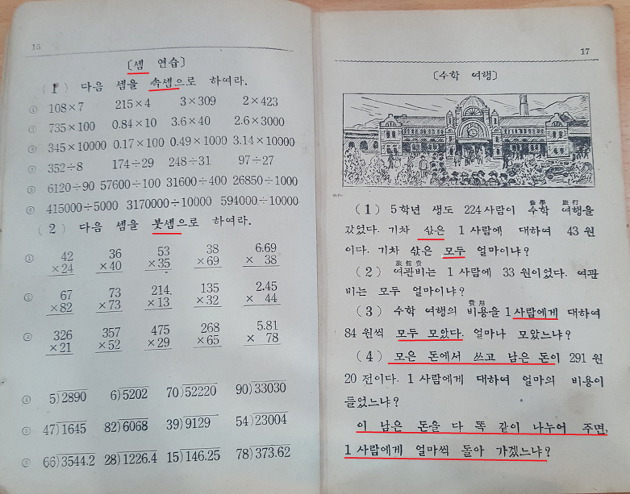 16
[셈 연습]
(1) 다음 셈을 속셈으로 하여라.
① 108×7 215×4 3×309 2×423
② 735×100 0.84×10 3.6×40 2.6×3000
③ 345×10000 0.17×100 0.49×1000 3.14×10000
④ 352÷8 174÷29 248÷31 97÷27
⑤ 6120÷90 57600÷100 31600÷400 26850÷1000
⑥ 415000÷5000 3170000÷10000 594000÷10000
(2) 다음 셈을 붓셈으로 하여라.
① 42 36 53 38 6.69
×24 ×40 ×35 ×69 × 38
② 67 73 214 135 2.45
×82 ×73 ×13 ×32 × 44
③ 326 357 475 268 5.81
×21 ×52 ×29 ×65 × 78
④ 5)2890 6)5202 70)52220 90)33030
⑤ 47)1645 82)6068 39)9129 54)23004
⑥ 66)3544.2 28)1226.4 15)146.25 78)373.62
17
[수학 여행]
修學 旅行
(1) 5학년 생도 224사람이 수학 여행을
갔었다. 기차 삯은 1사람에 대하여 43원
이다. 기차 삯은 모두 얼마이냐?
旅館費
(2) 여관비는 1사람에 33원이었다. 여관
비는 모두 얼마이냐?
費用
(3) 수학 여행의 비용을 1사람에게 대하여
84원씩 모두 모았다. 얼마나 모았느냐?
(4) 모은 돈에서 쓰고 남은 돈이 291원
20전이다. 1사람에게 대하여 얼마의 비용이
들었느냐?
이 남은 돈을 다 똑 같이 나누어 주면,
1사람에게 얼마씩 돌아 가겠느냐?